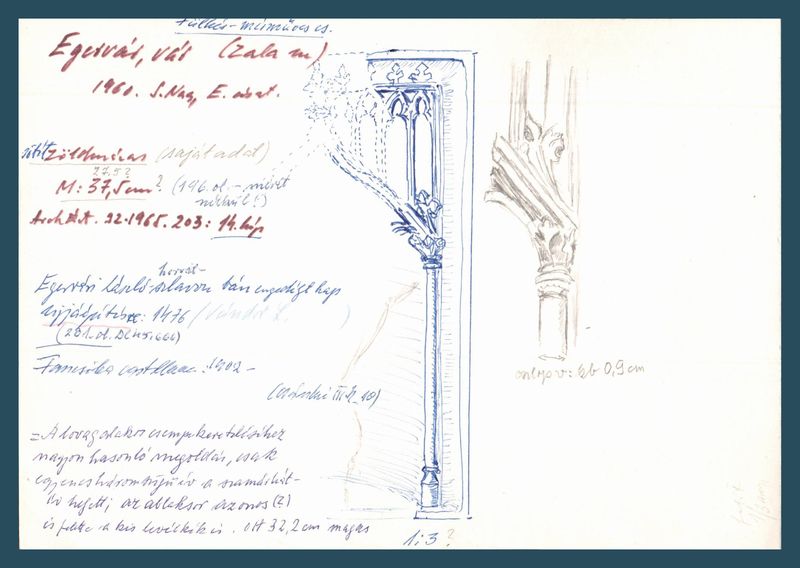 Fülkés-mérműves cs.
Egervár, vár (Zala m)
1960. S. Nagy E. ásat.
sötét zöldmázas (saját adat)
27,5?
M: 37,5 cm? (196. ol. – méret nélkül!)
Arch. Ért. 92. 1965. 203: 14. kép
Egervári László horvát-szlavón bán engedélyt kap
újjáépítésre: 1476 (Vándor L. )
(201. ol. DL 45.666)
castellum: 1902 –
(Csánki III. k. 10)
= A lovagalakos csempe kereteléséhez
nagyon hasonló megoldás, csak
egyenes háromszögű ív a szamárhát-
ív helyett; az ablaksor azonos (?)
és felette a kis levélkék is. Ott 32,2 cm magas
1:3?
oszlop v: kb 0,9 cm